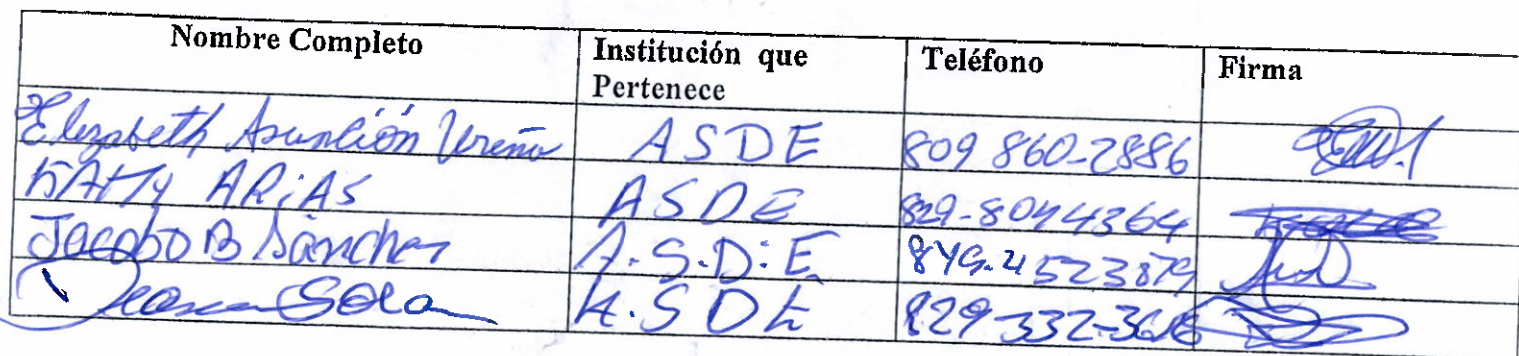 Nombre Completo Institución que Pertenece Teléfono Firma
Elizabeth Asunción Ureña ASDE 809 860-2886
KATTY ARiAS ASDE 829-8044364
Jacobo B Sánchez A.S.D.E 849-4523879
Sola A.SDE 829-332-3616